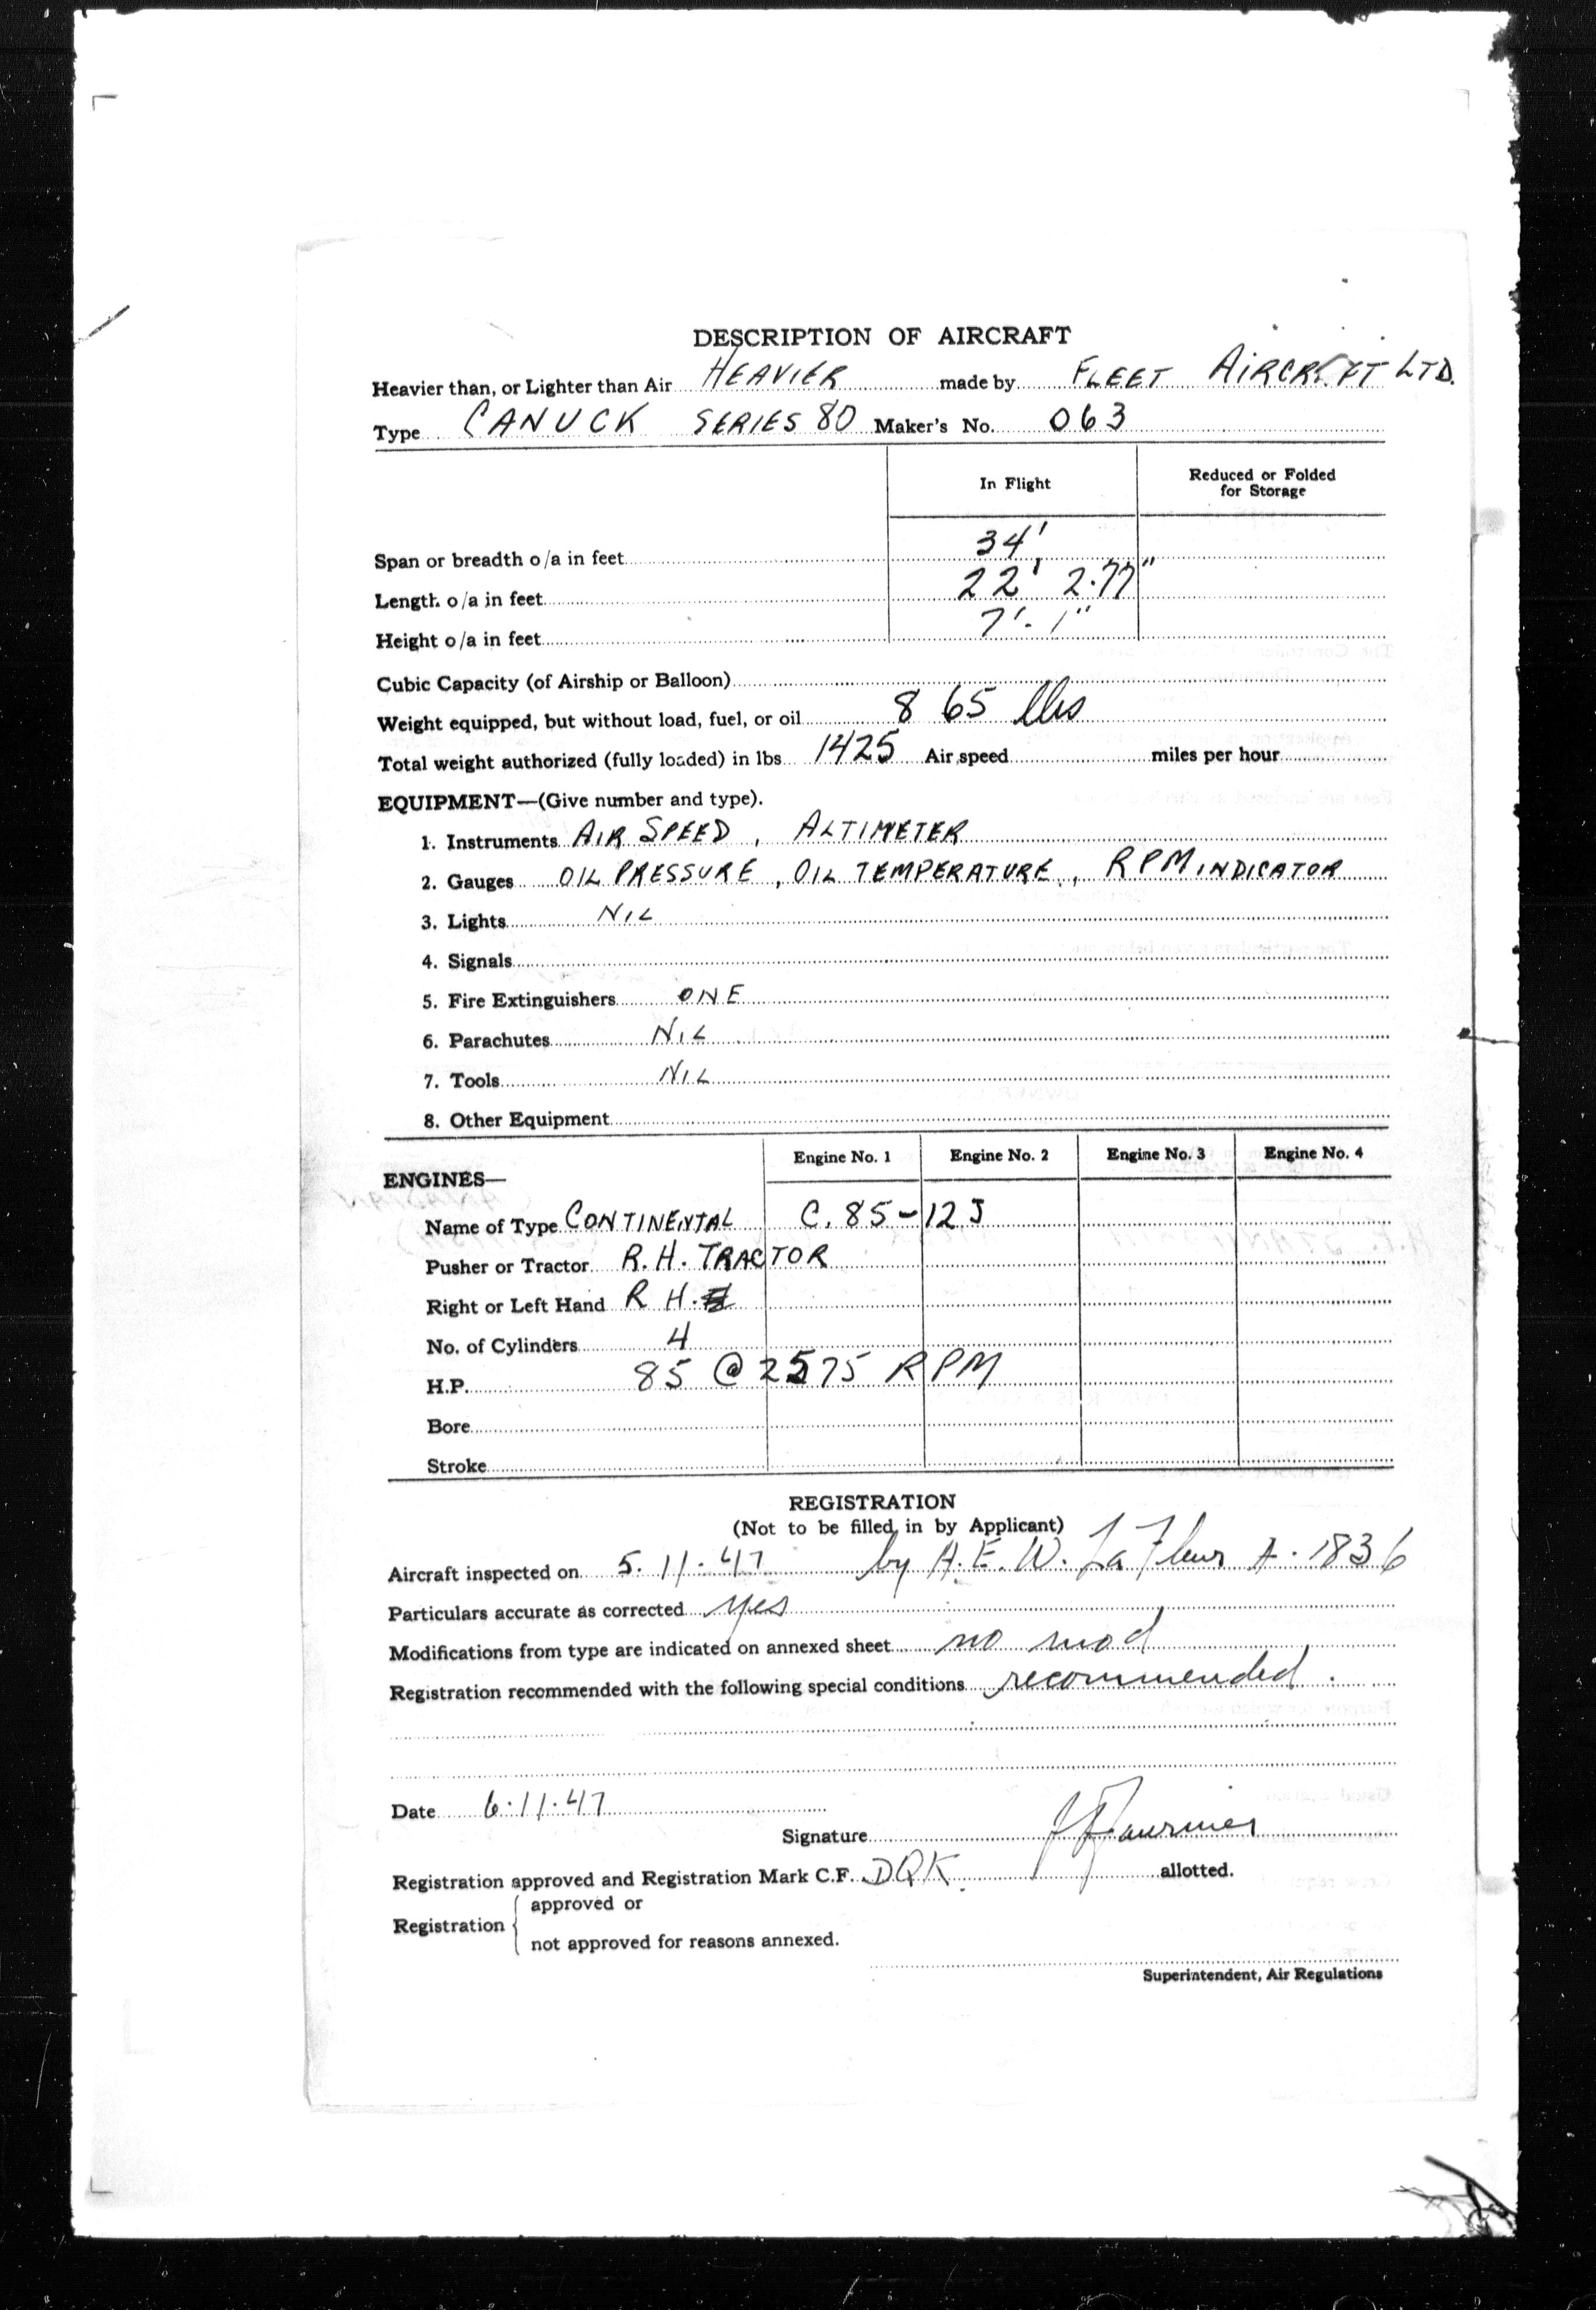 DESCRIPTION OF AIRCRAFT
Heavier than, or Lighter than Air HEAVIER made by FLEET AIRCRAFT LTD.
Type CANUCK SERIES 80 Maker's No. 063
In Flight Reduced or Folded for Storage
Span or breadth o/a in feet 34'
Length o/a in feet 22' 2.77"
Height o/a in feet 7'-1"
Cubic Capacity (of Airship or Balloon)
Weight equipped, but without load, fuel, or oil 865 lbs
Total weight authorized (fully loaded) in lbs 1425 Air speed miles per hour
EQUIPMENT—(Give number and type).
1. Instruments AIR SPEED, ALTIMETER
2. Gauges OIL PRESSURE, OIL TEMPERATURE, RPM INDICATOR
3. Lights NIL
4. Signals
5. Fire Extinguishers ONE
6. Parachutes NIL
7. Tools NIL
8. Other Equipment
ENGINES— Engine No. 1 Engine No. 2 Engine No. 3 Engine No. 4
Name of Type CONTINENTAL C.85-12J
Pusher or Tractor R.H. TRACTOR
Right or Left Hand R H.
No. of Cylinders 4
H.P. 85 @ 2575 RPM
Bore
Stroke
REGISTRATION
(Not to be filled in by Applicant)
Aircraft inspected on 5.11.47 by H.E.W. La Fleur A.1836
Particulars accurate as corrected yes
Modifications from type are indicated on annexed sheet no mod
Registration recommended with the following special conditions recommended.
Date 6.11.47
Signature Fournier
Registration approved and Registration Mark C.F. DQK allotted.
Registration { approved or
not approved for reasons annexed.
Superintendent, Air Regulations